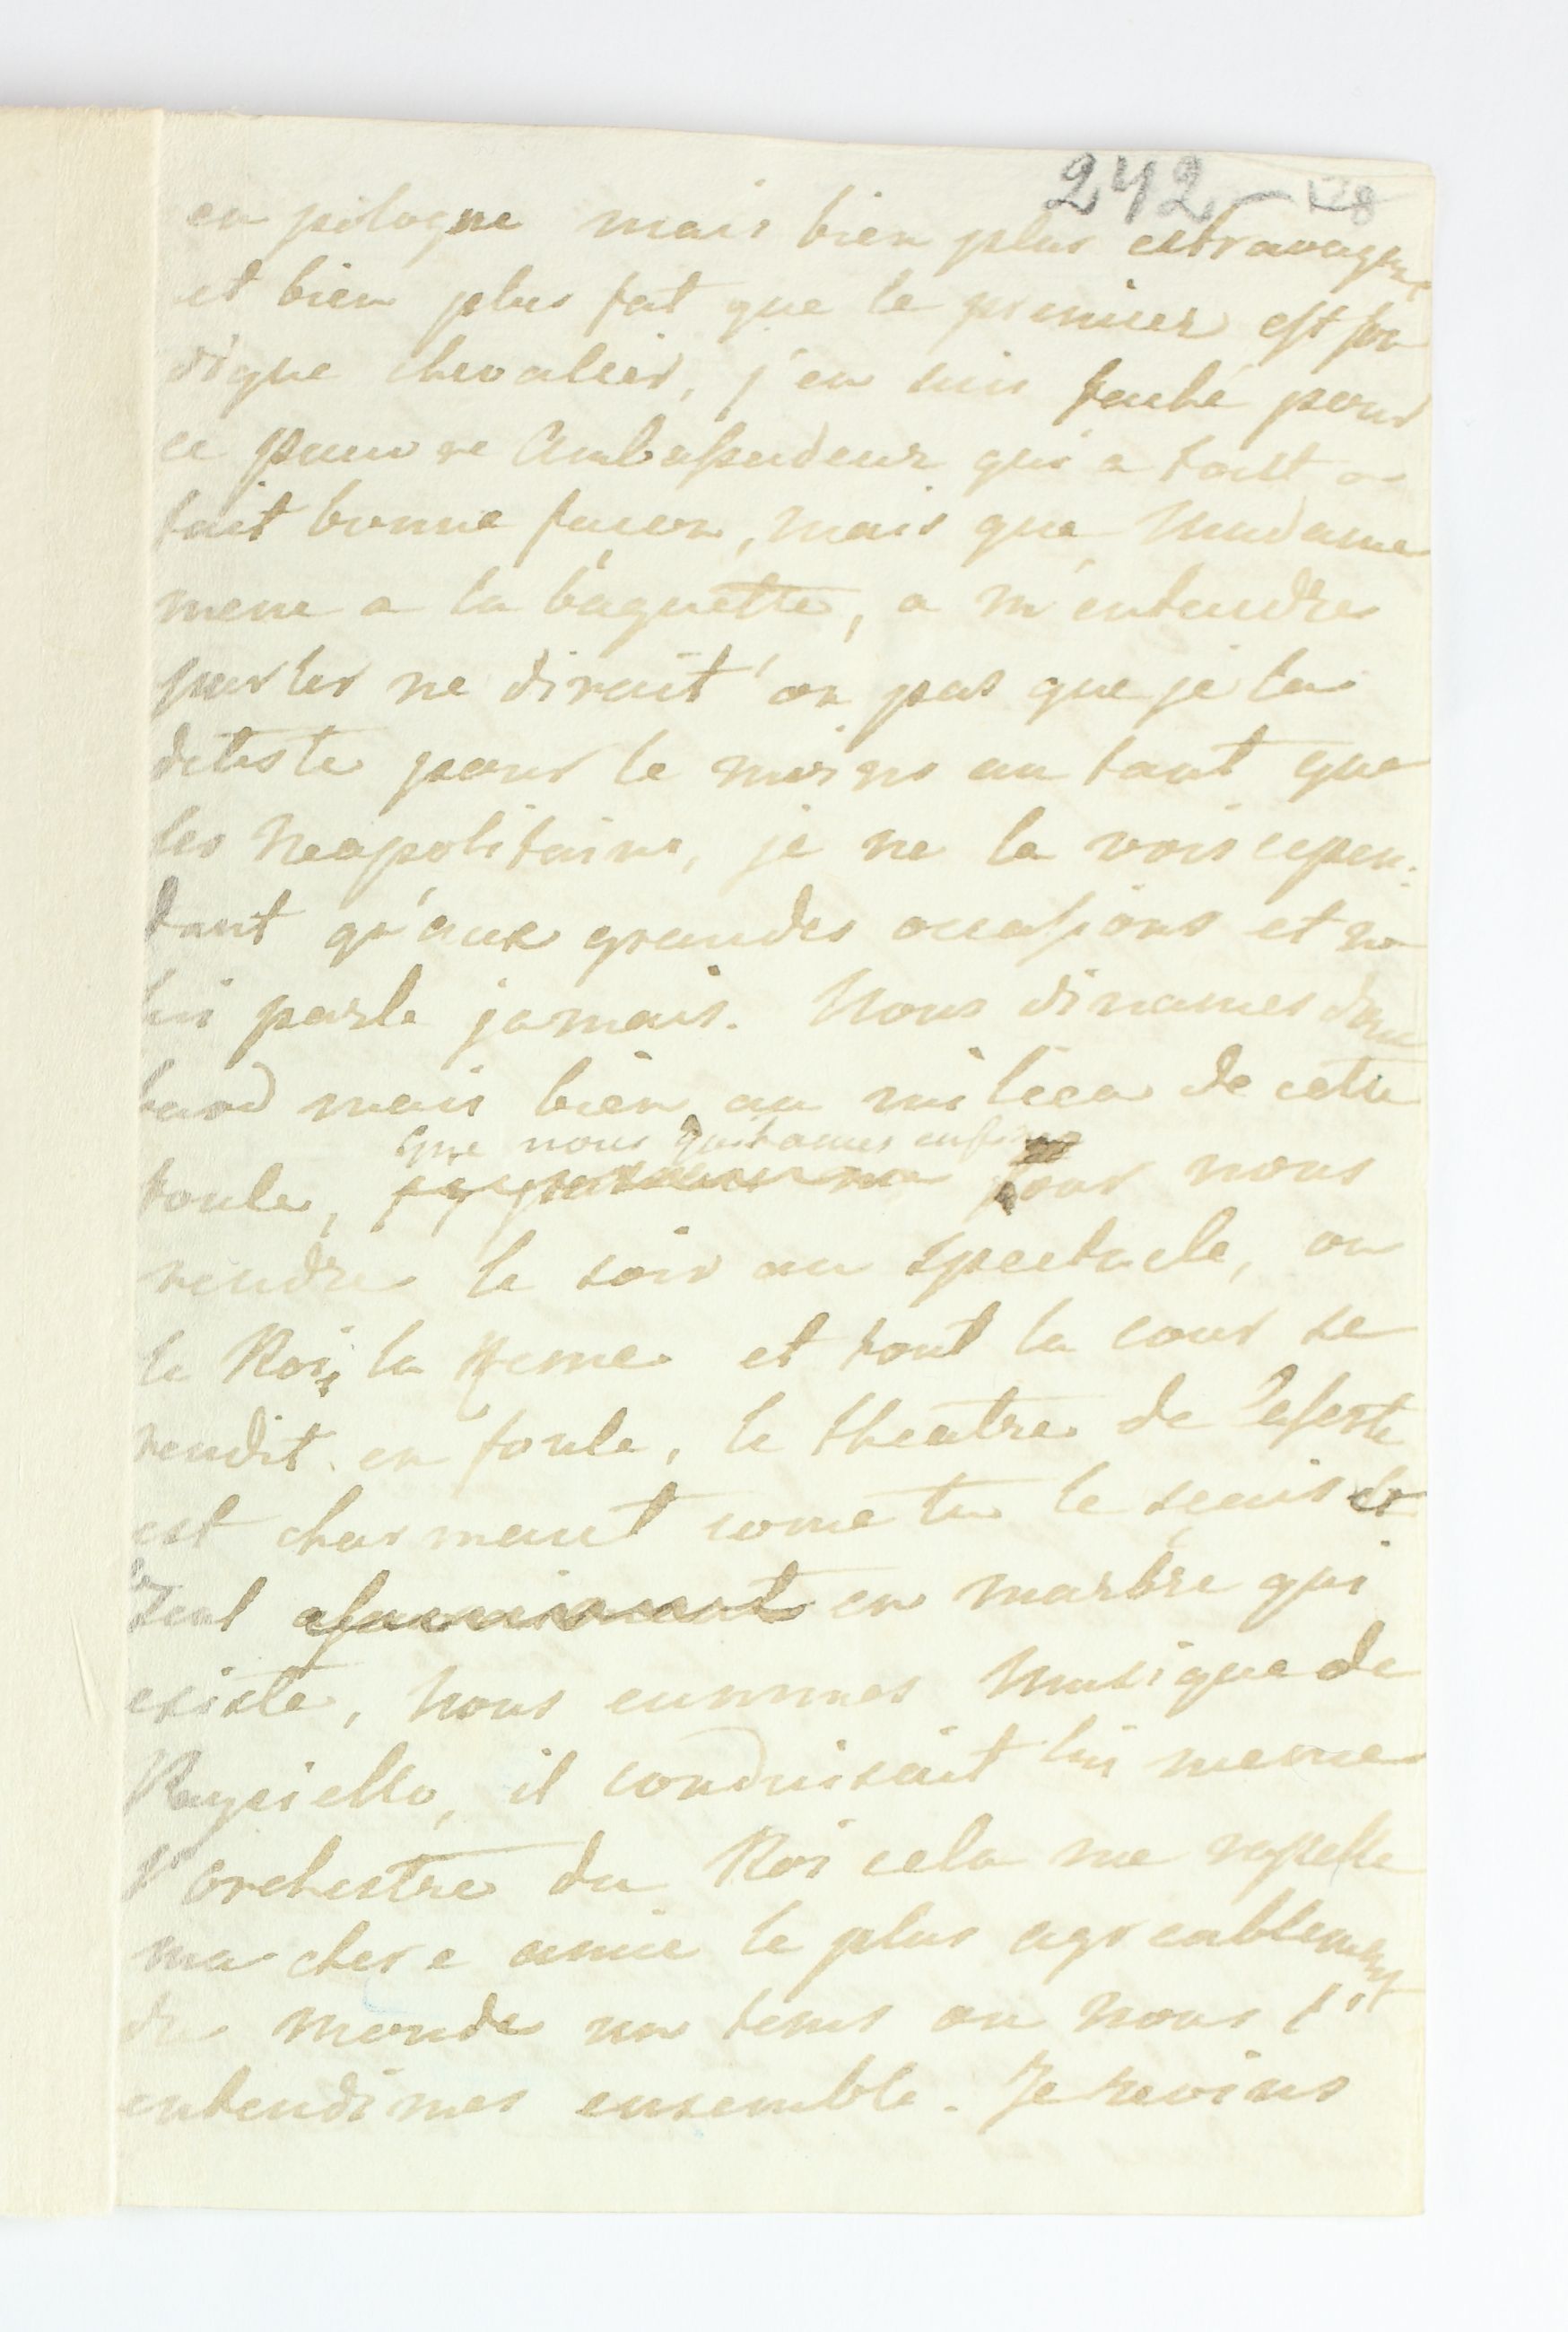 242 - 128
en pologne mais bien plus extravagant
et bien plus fat que le premier est son
digne chevalier, j'en suis faché pour
ce pauvre Ambassadeur qui a tout a
fait bonne facon, mais que Madame
mene a la baguette, a m'entendre
parler ne dirait on pas que je la
deteste pour le moins au tant que
les Neapolitains, je ne la vois cepen:
dant qu'aux grandes occasions et ne
lui parle jamais. Nous dinames donc
tard mais bien au milieu de cette
que nous quitames enfin
foule, pour nous
rendre le soir au spectacle, ou
le Roi, la Reine et tout la cour se
rendit en foule, le theatre de Caserte
est charmant come tu le sçais le
seul en marbre qui
existe, nous eummes Musique de
Paysiello, il conduisait lui meme
l'orchestre du Roi cela me rapelle
ma chere amie le plus agreablement
du monde un tems ou nous l'
entendimes ensemble. Je revins